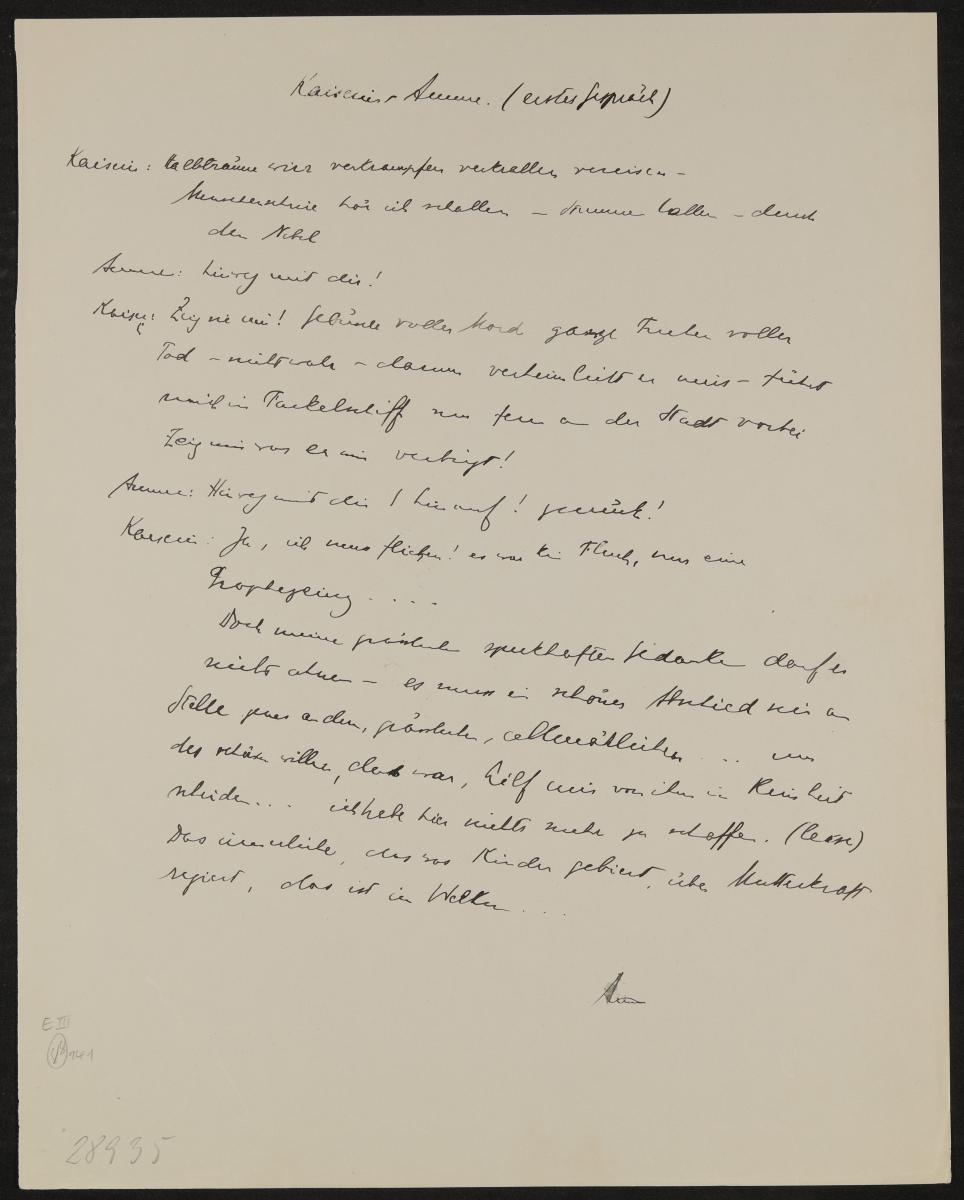 Kaiserin - Amme. (erstes Gespräch)
Kaiserin: Halbträume wirr verkrampfen verkrallen vereisen –
Menschenschreie hör ich schallen – Stimmen lallen – durch
den Nebel
Amme: hinweg mit dir!
Kaiserin: Zeig sie mir! voller Mord ganze voller
Tod – nicht wahr – darum verheimlicht er mirs – führt
mich im Fackelschiff nur fern an der Stadt vorbei
Zeig mir was er mir verbirgt!
Amme: Hinweg mit dir! hinauf! zurück!
Kaiserin: Ja, ich muss fliehen! es war kein Fluch, nur eine
Prophezeiung . . . .
Doch meine grässlichen spukhaften Gedanken darf er
nicht ahnen – es muss ein schönes Abschied sein an
Stelle jenes andern, grässlichen, allmählichen . . . um
des schönen willen, das war, hilf mir von ihm in Reinheit
scheiden . . . ich habe hier nichts mehr zu schaffen. (leise)
Das, das was Kinder gebiert, über Mutterkraft
regiert, das ist in Welten . . .
Am
E III
141
28935